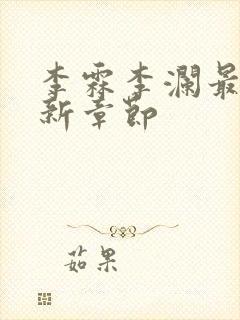 李霖李澜最
新章节
茹果